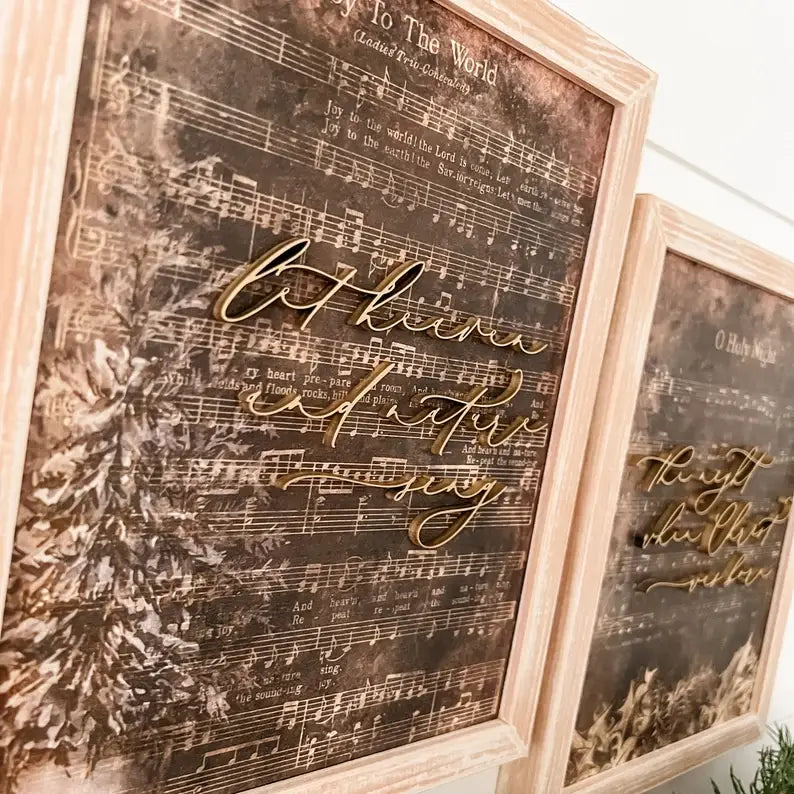 y To The World
(Ladies Trio-Concealed)
Joy to the world! the Lord is come; Let earth
Joy to the earth! the Sav-ior reigns; Let men their songs
let heaven
ry heart pre-pare room, And
and floods, rocks, hill and plains And
and nature
And heav'n and na-ture
Re-peat the sound-ing
sing
And heav'n, and heav'n and na-ture sing,
Re-peat, re-peat the sound-ing joy,
ing joy.
na-ture sing.
the sound-ing joy.
O Holy Night
the night
when Christ
was born